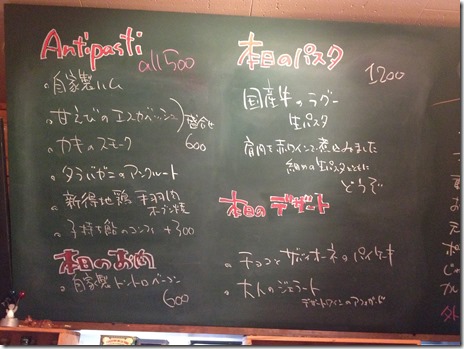 Antipasti
all 500
自家製ハム
甘えびのエスカベッシュ
盛合せ
カキのスモーク
600
タラバガニのアンクルート
新得地鶏 手羽肉
オーブン焼
子持ち鮎のコンフィ +300
本日のお肉
自家製トントロベーコン
600
本日のパスタ
1200
国産牛のラグー
生パスタ
肩肉を赤ワインで煮込みました
細めの生パスタとともに
どうぞ
本日のデザート
チョコとザバイオーネのパイケーキ
大人のジェラート
デザートワインのアフォガード